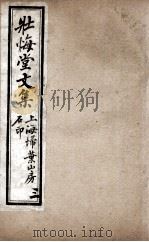 壯悔堂文集
上海掃葉山房
石印
三
mtoou.info